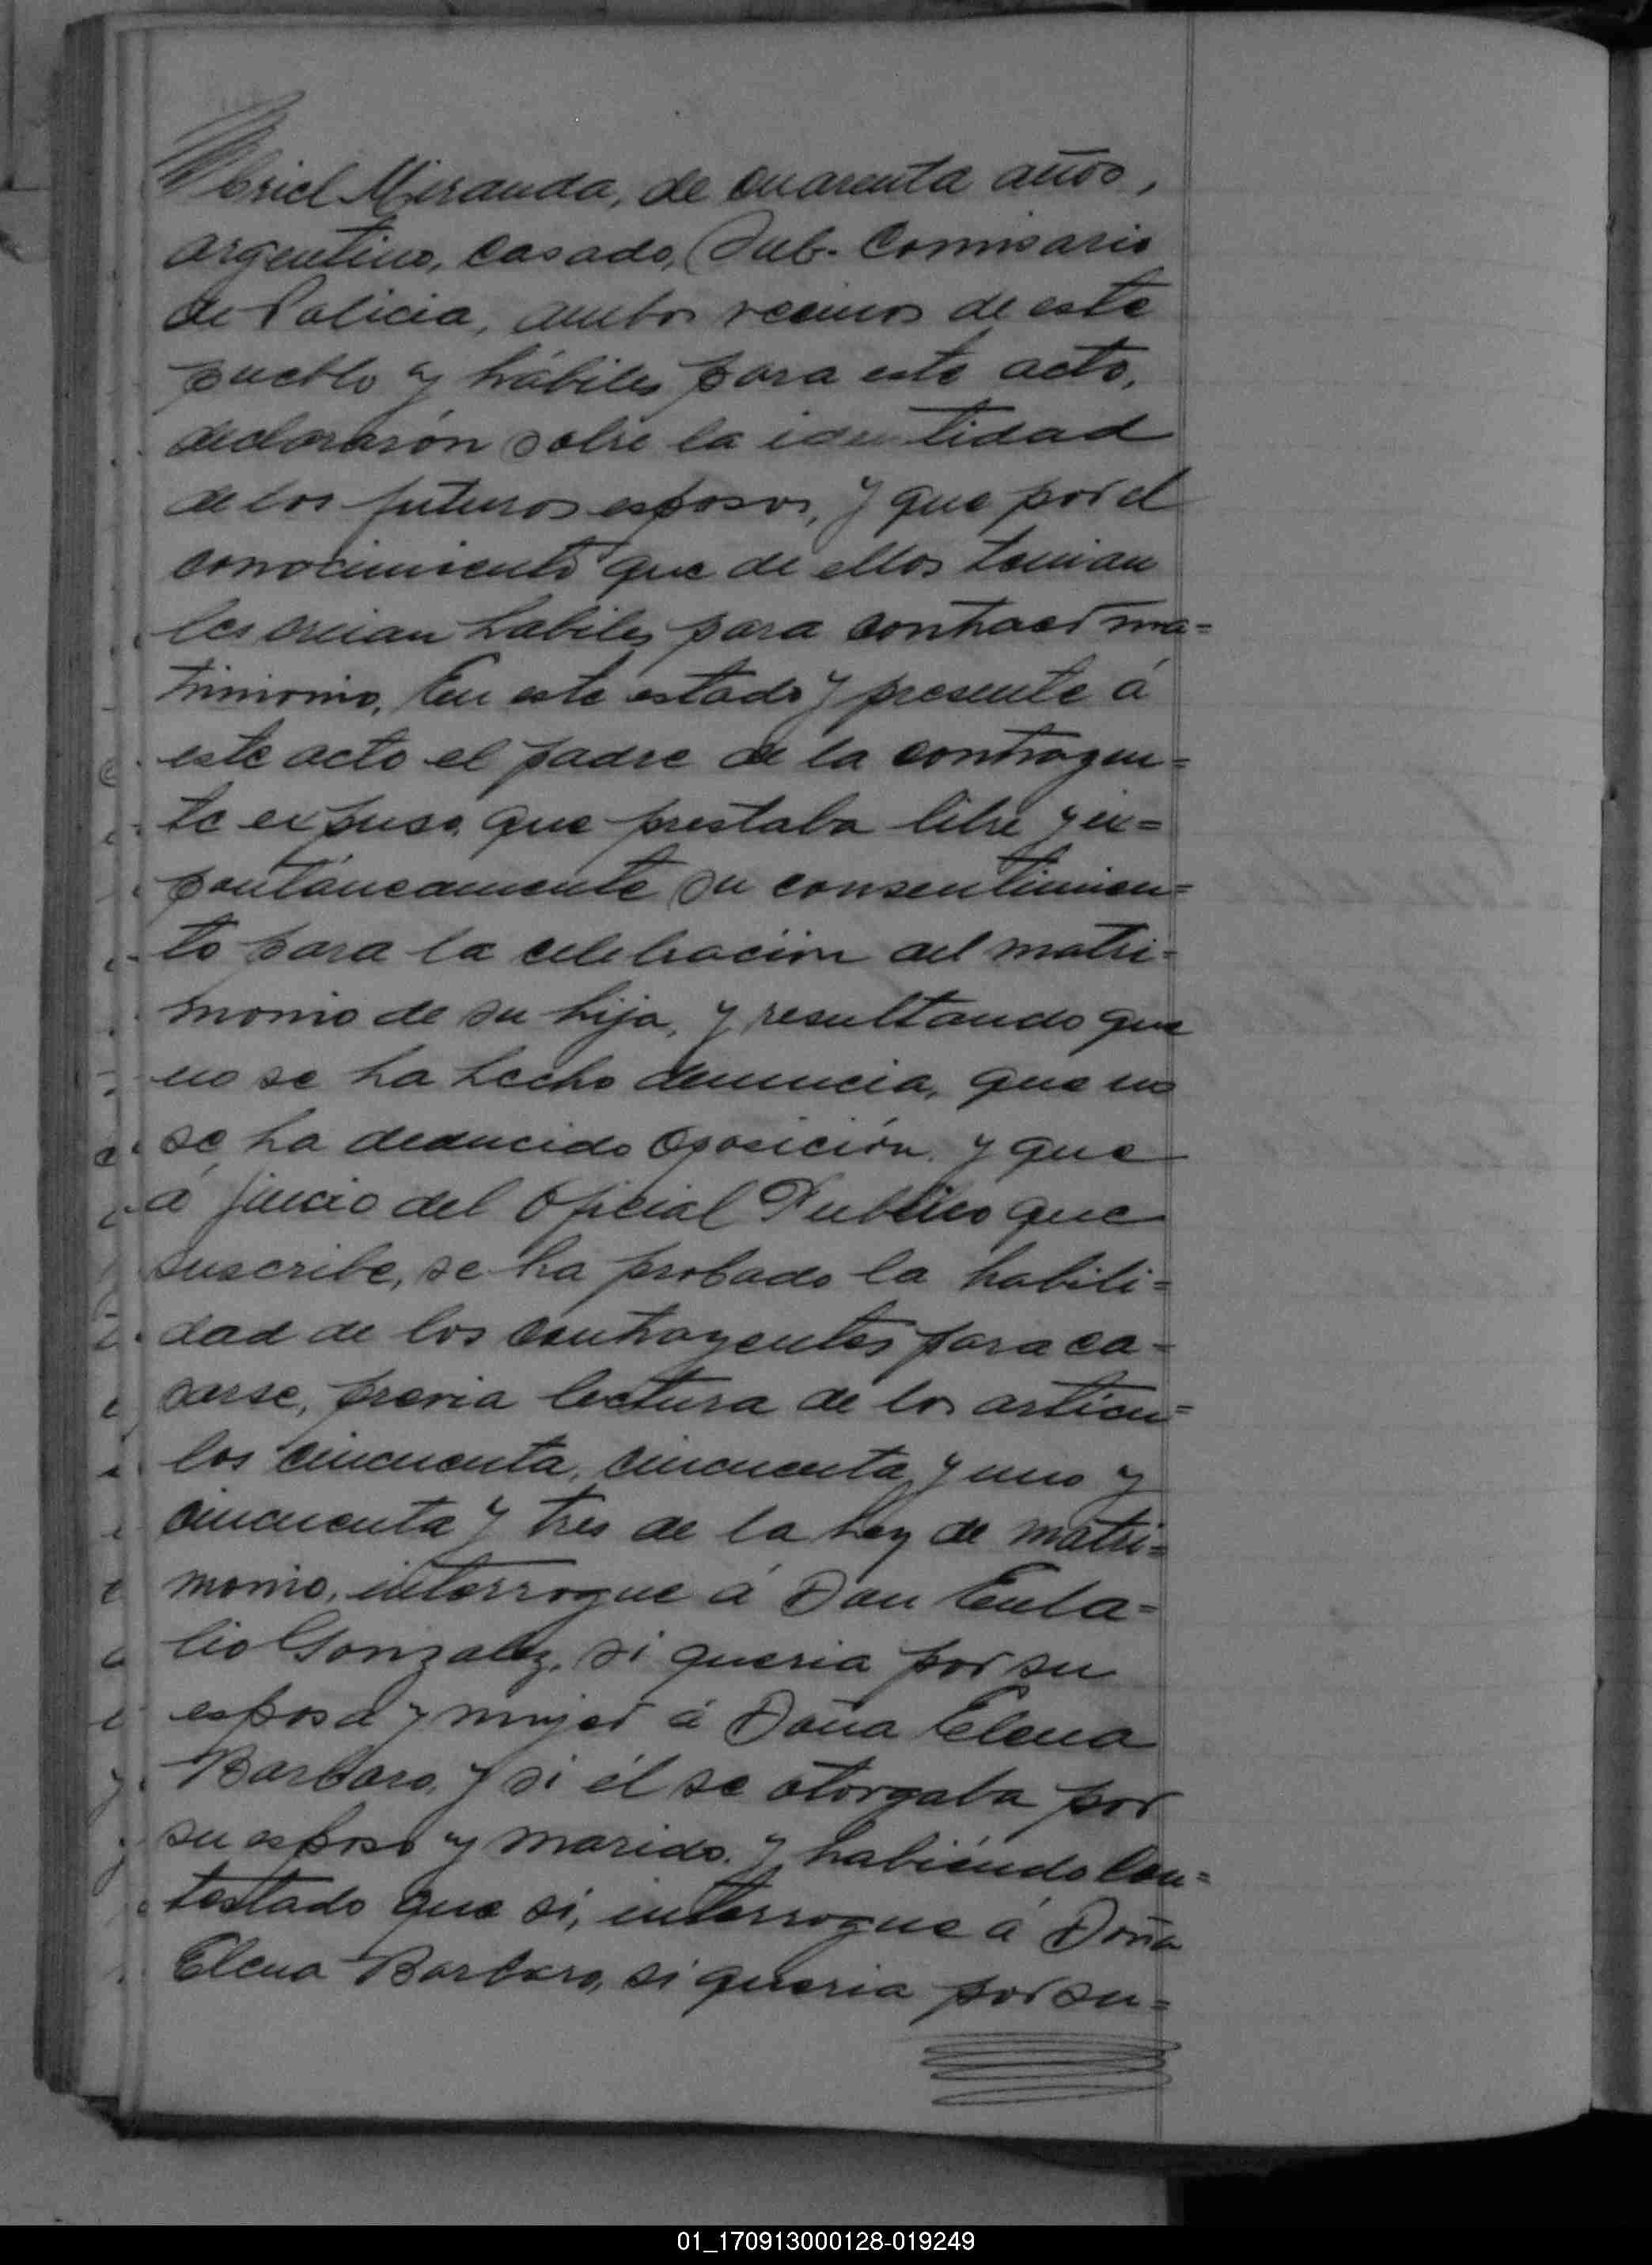 briel Miranda, de cuarenta años,
argentino, casado, Sub-Comisario
de Policia, ambos vecinos de este
pueblo y hábiles para este acto,
declararón sobre la identidad
de los futuros esposos, y que por el
conocimiento que de ellos tenian
les creian habiles para contraer ma=
trimonio. En este estado y presente á
este acto el padre de la contrayen=
te expuso, que prestaba libre y ex=
pontáneamente su consentimien=
to para la celebración del matri=
monio de su hija, y resultando que
no se ha hecho denuncia, que no
se ha deducido oposición, y que
á juicio del Oficial Publico que
suscribe, se ha probado la habili=
dad de los contrayentes para ca=
sarse, previa lectura de los articu=
los cincuenta, cincuenta y uno y
cincuenta y tres de la Ley de matri=
monio, interrogue á Don Eula=
lio Gonzalez, si queria por su
esposa y mujer á Doña Elena
Barbaro, y si él se otorgaba por
su esposo y marido. y habiéndo Con=
testado que si, interrogue á Doña
Elena Barbaro, si queria por su=
01_170913000128-019249